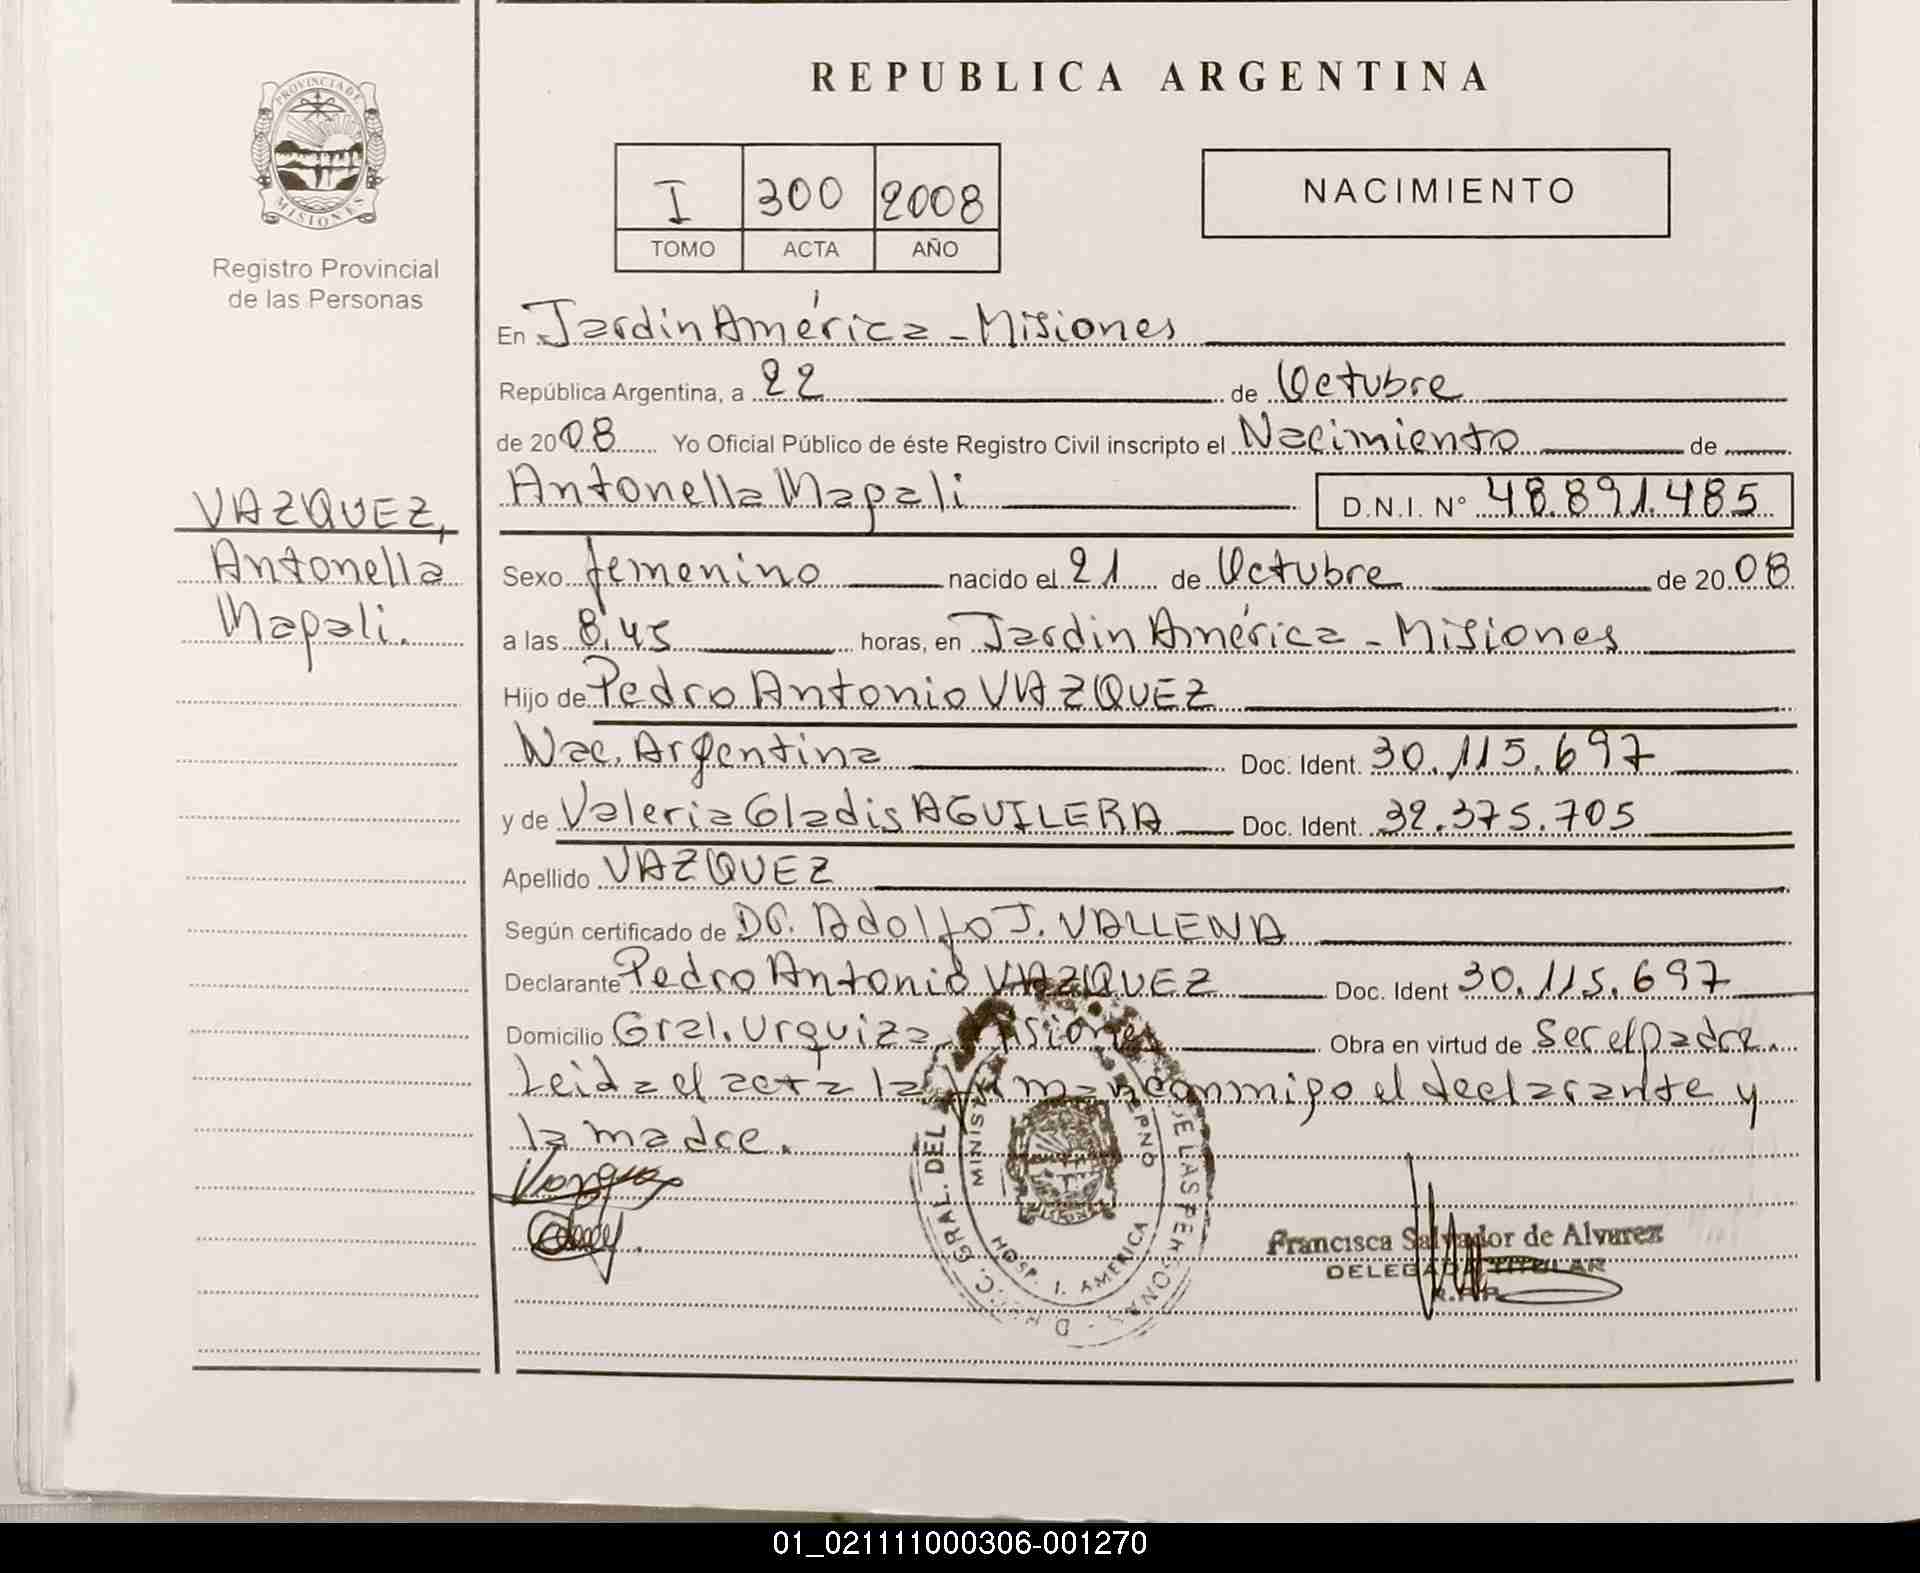 REPUBLICA ARGENTINA
PROVINCIA DE
MISIONES
Registro Provincial
de las Personas
I 300 2008
TOMO ACTA AÑO
NACIMIENTO
En Jardín América - Misiones
República Argentina, a 22 de Octubre
de 2008 Yo Oficial Público de éste Registro Civil inscripto el Nacimiento de
Antonella Magali D.N.I. Nº 48.891.485
VAZQUEZ,
Antonella
Magali.
Sexo femenino nacido el 21 de Octubre de 2008
a las 8,45 horas, en Jardín América - Misiones
Hijo de Pedro Antonio VAZQUEZ
Nac. Argentina Doc. Ident. 30.115.697
y de Valeria Gladis AGUILERA Doc. Ident. 32.375.705
Apellido VAZQUEZ
Según certificado de Dr. Adolfo J. VALLENA
Declarante Pedro Antonio VAZQUEZ Doc. Ident 30.115.697
Domicilio Gral. Urquiza - Misiones Obra en virtud de ser el padre.
Leida el acta la firman conmigo el declarante y
la madre.
GRAL. DEL DE LAS PERSONAS
HOSP. J. AMERICA
Francisca Salvador de Alvarez
DELEGADA TITULAR
R.P.P.
01_021111000306-001270